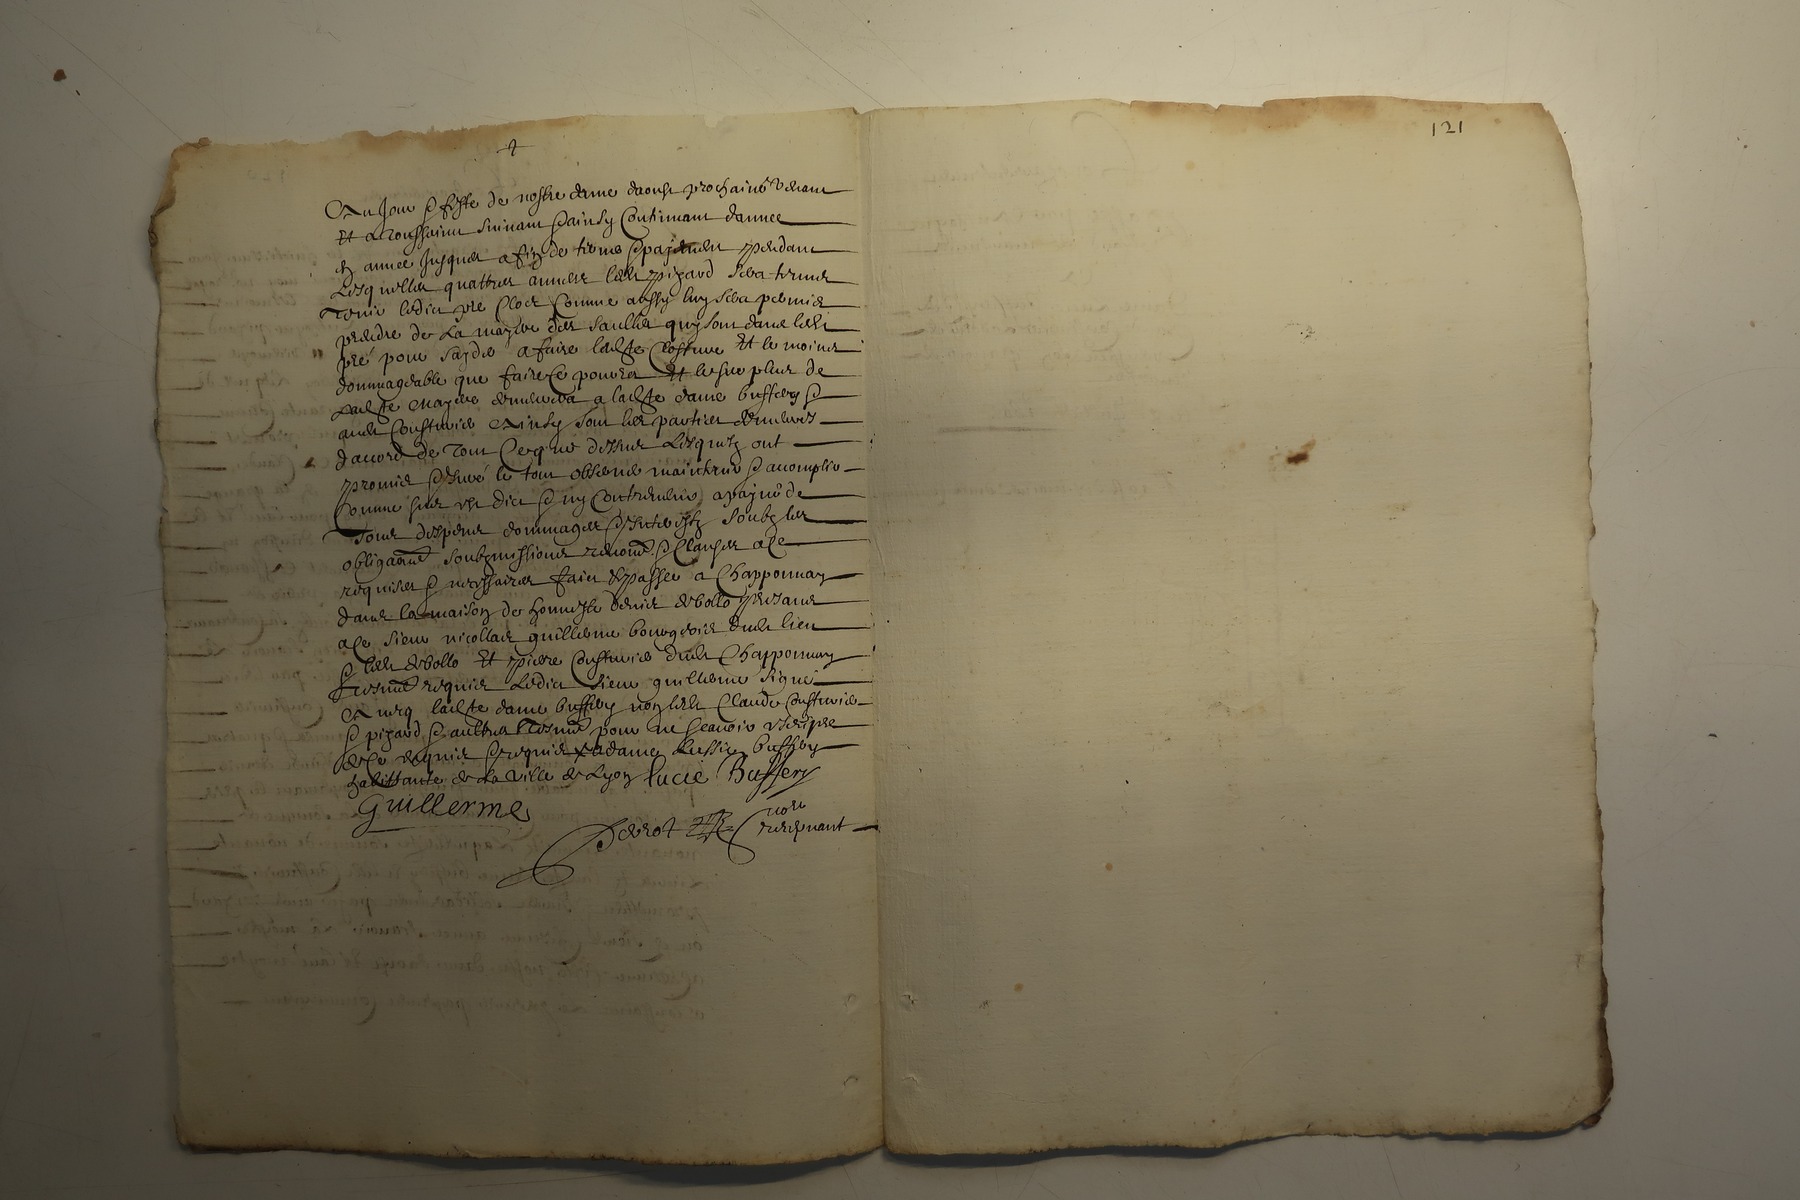 Au Jour & feste de nostre dame daoust prochaine venant
Et a toussainct suivant & ainsy Continuant dannee
en annee Jusques a fin de terme & payement pendant
Lesquelles quattres annees ledt pizard sera tenue
Tenir ledict pre Cloz Comme aussy luy sera permis
prendre de La mayere des saulles quy sont dans ledt
pré pour sayder a faire ladte Closture Et le moins
dommageable que faire Ce pourra Et le surplus de
Ladte Mayere demeurera a ladte dame buffery &
audt Consturier Ainsy sont les parties demeures
daccord de Tout Ceque dessus Lesquelz ont
promis & Juré le tout observer maintenir & accomplir
Comme sus est dict & ny Contrevenir a payne de
Tous despens dommages & Interestz soubz les
obligaons soubzmissions renonons & Clauses a Ce
requises & necessaires faict & passe a Chapponnay
dans la maison de honneste denis debollo presans
a Ce sieur nicollas guillerme bourgeois dudt lieu
& ledt debollo Et pierre Consturier dudt Chapponnay
Tesmoins requis Ledict sieur guillerme signé
Avecq ladte dame buffery non ledt Claude Consturier
& pizard & aultres Tesmoins pour ne scavoir escripre
de Ce enquis & requis dame Lussie buffery
habittante de La Ville de Lyon Lucie Buffery
Guillerme
Perrot nore recepvant
121